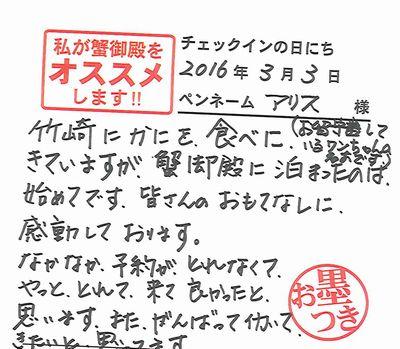 私が蟹御殿を
オススメ
します!!
チェックインの日にち
2016年3月3日
ペンネーム アリス 様
竹崎にかにを、食べに、
(お留守番して
いるワンちゃんの
名前です。)
きていますが、蟹御殿に泊まったのは、
始めてです。皆さんのおもてなしに、
感動しております。
なかなか、予約が、とれなくて、
やっと、とれて、来て良かったと、
思います。また、がんばって働いて、
きたいと思ってます
お墨
つき